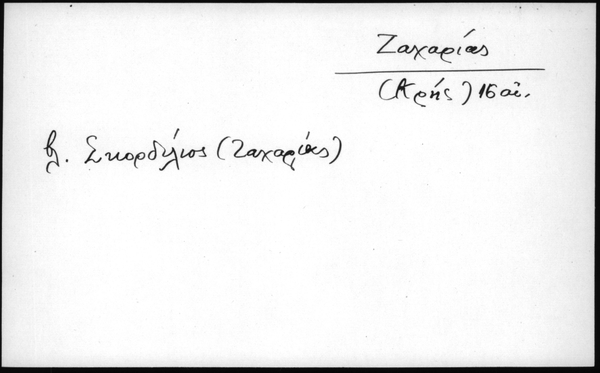 Ζαχαρίας
(Κρής) 16 αἰ.
βλ. Σκορδύλιος (Ζαχαρίας)